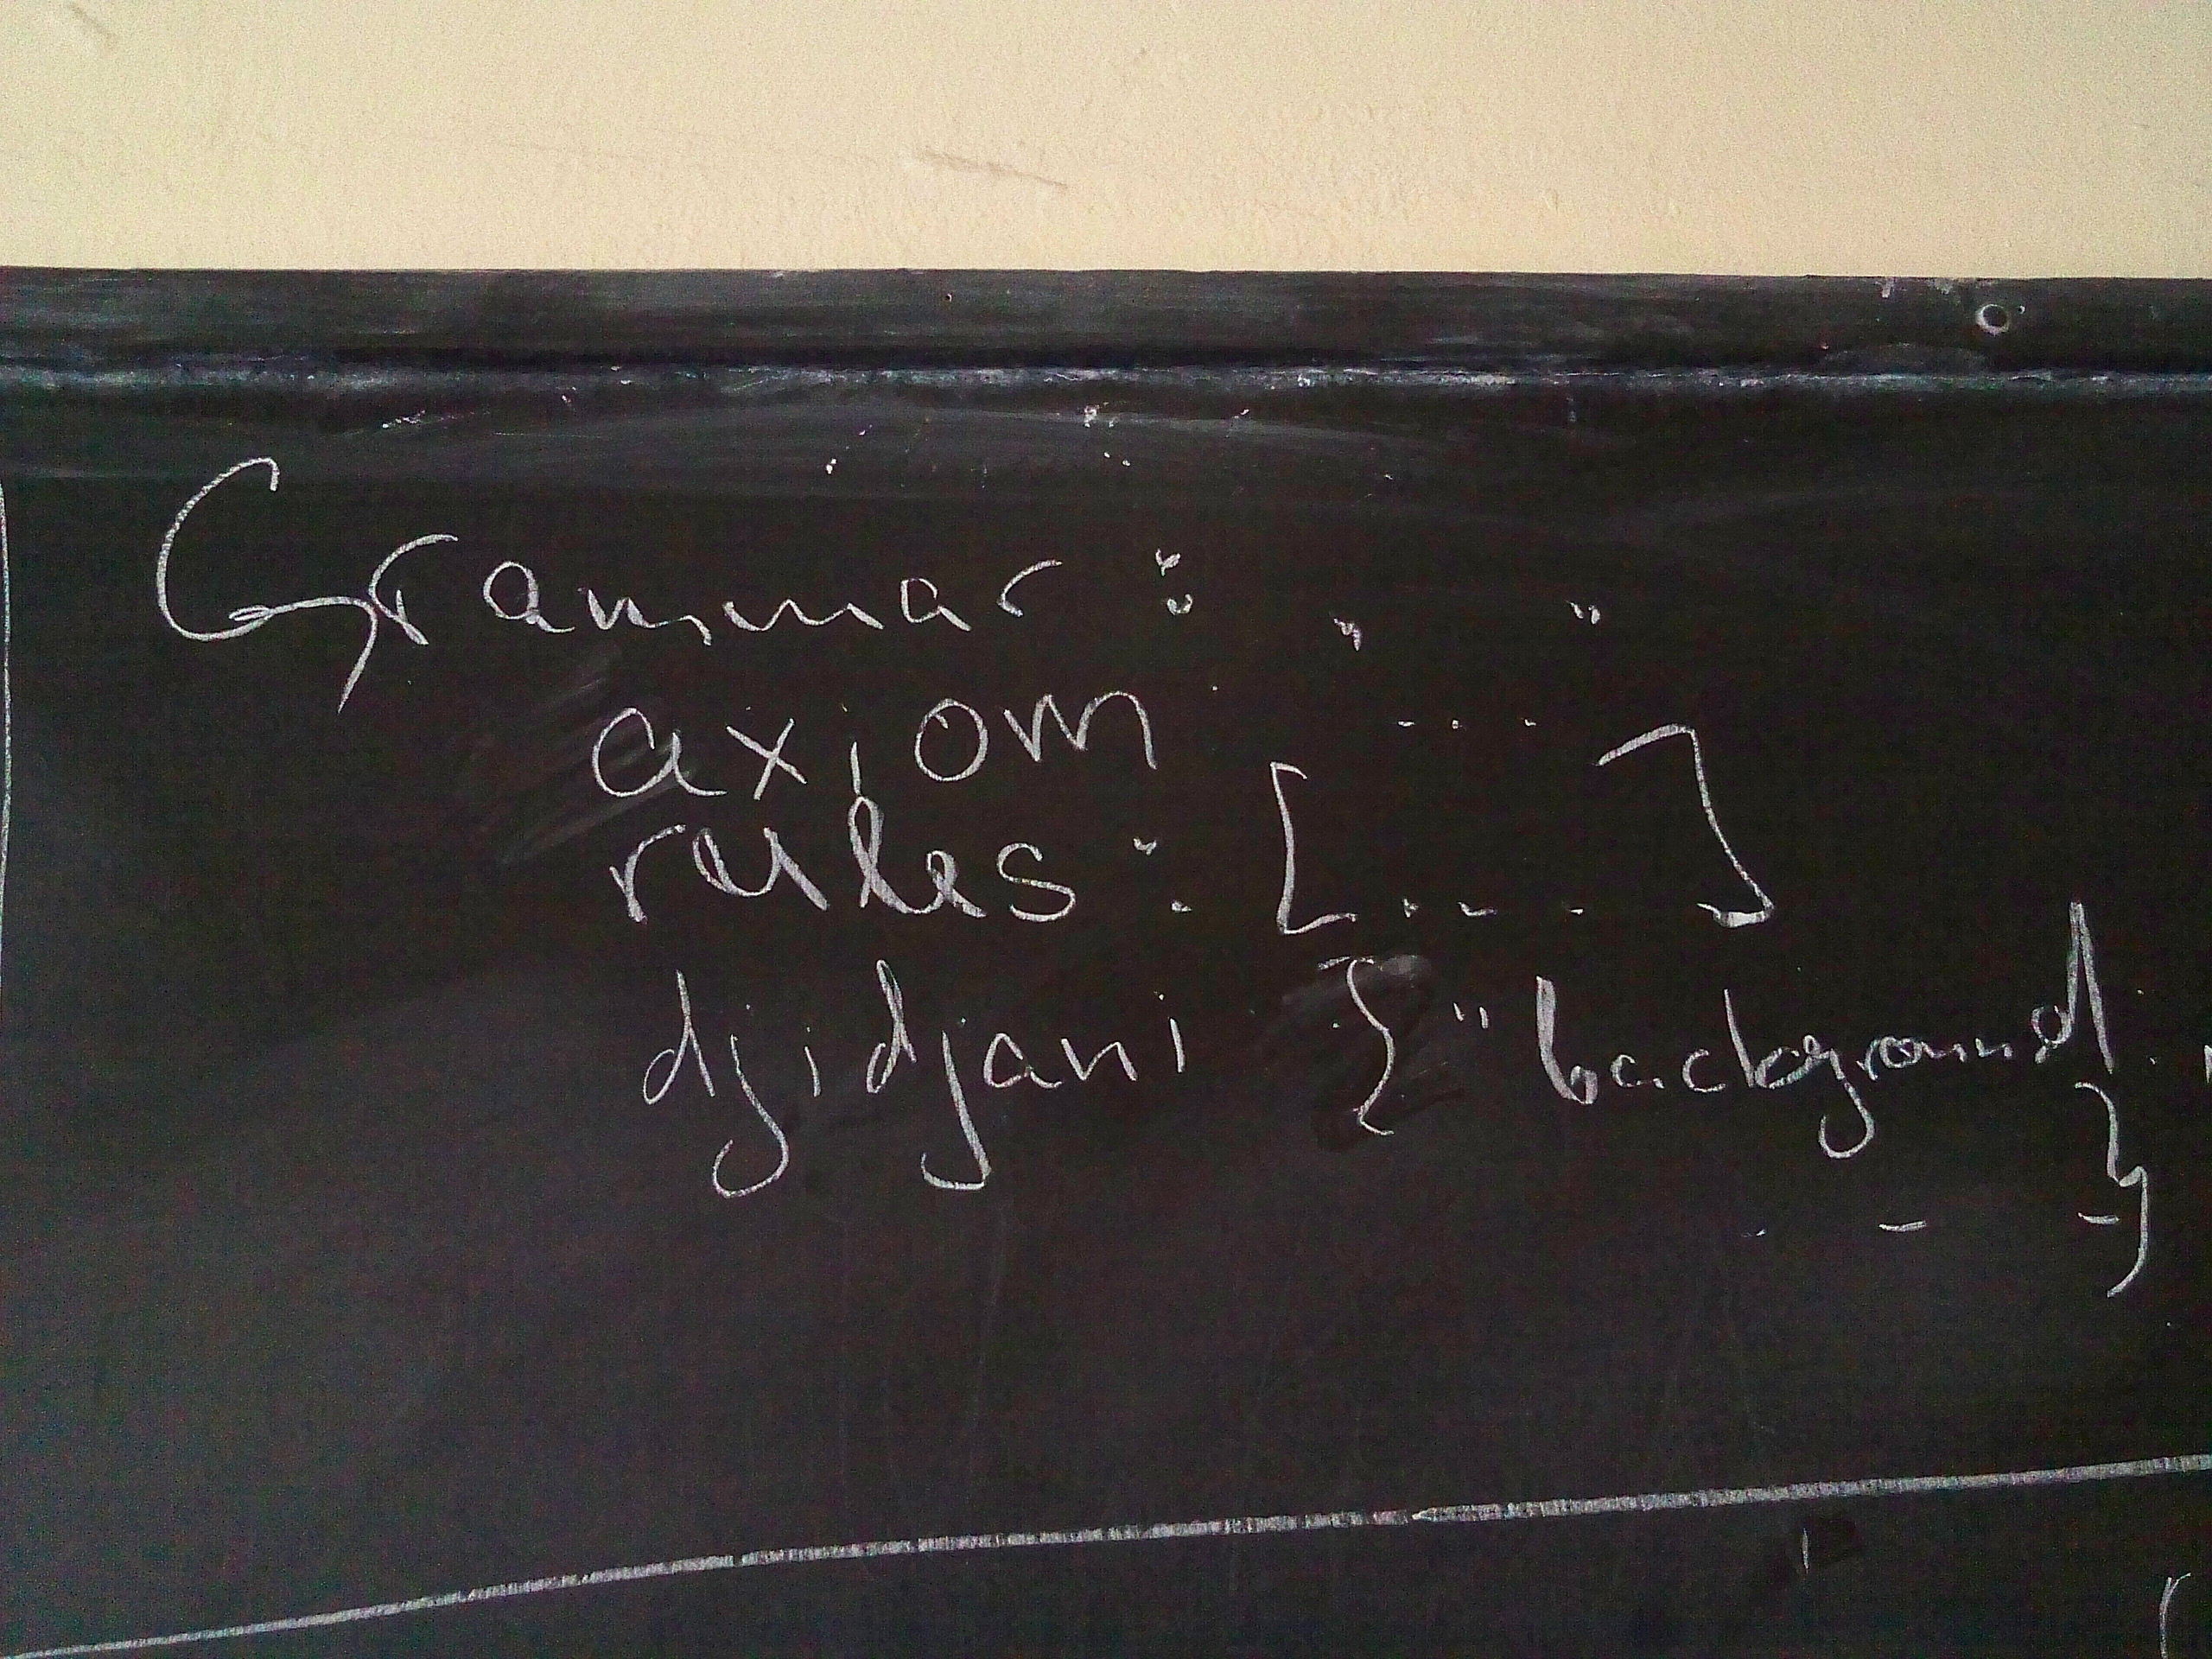 Grammar : " "
axiom ...
rules : [....]
djidjani { "background
. - - }